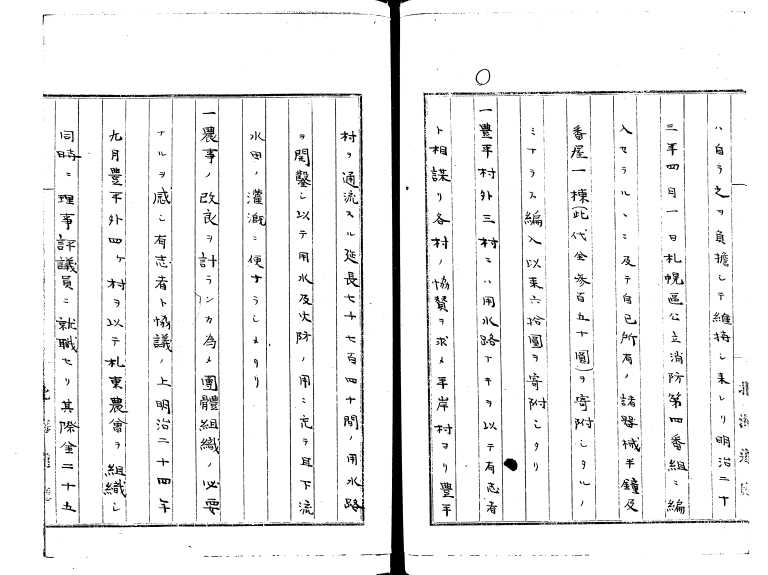 ハ自ラ之ヲ負擔シテ維持シ来レリ明治二十
三年四月一日札幌區公立消防第四番組ニ編
入セラルヽニ及テ自己所有ノ諸器械半鐘及
番屋一棟(此代金参百五十圓)ヲ寄附シタルノ
ミナラス編入以来六拾圓ヲ寄附シタリ
一豊平村外三村ニハ用水路ナキヲ以テ有志者
ト相謀リ各村ノ協賛ヲ求メ平岸村ヨリ豊平
村ヲ通流スル延長七千七百四十間ノ用水路
ヲ開鑿シ以テ用水及火防ノ用ニ充テ且下流
水田ノ灌漑ニ便ナラシメタリ
一農事ノ改良ヲ計ランカ為メ團體組織ノ必要
ナルヲ感シ有志者ト協議ノ上明治二十四年
九月豊平外四ヶ村ヲ以テ札東農會ヲ組織シ
同時ニ理事評議員ニ就職セリ其際金二十五